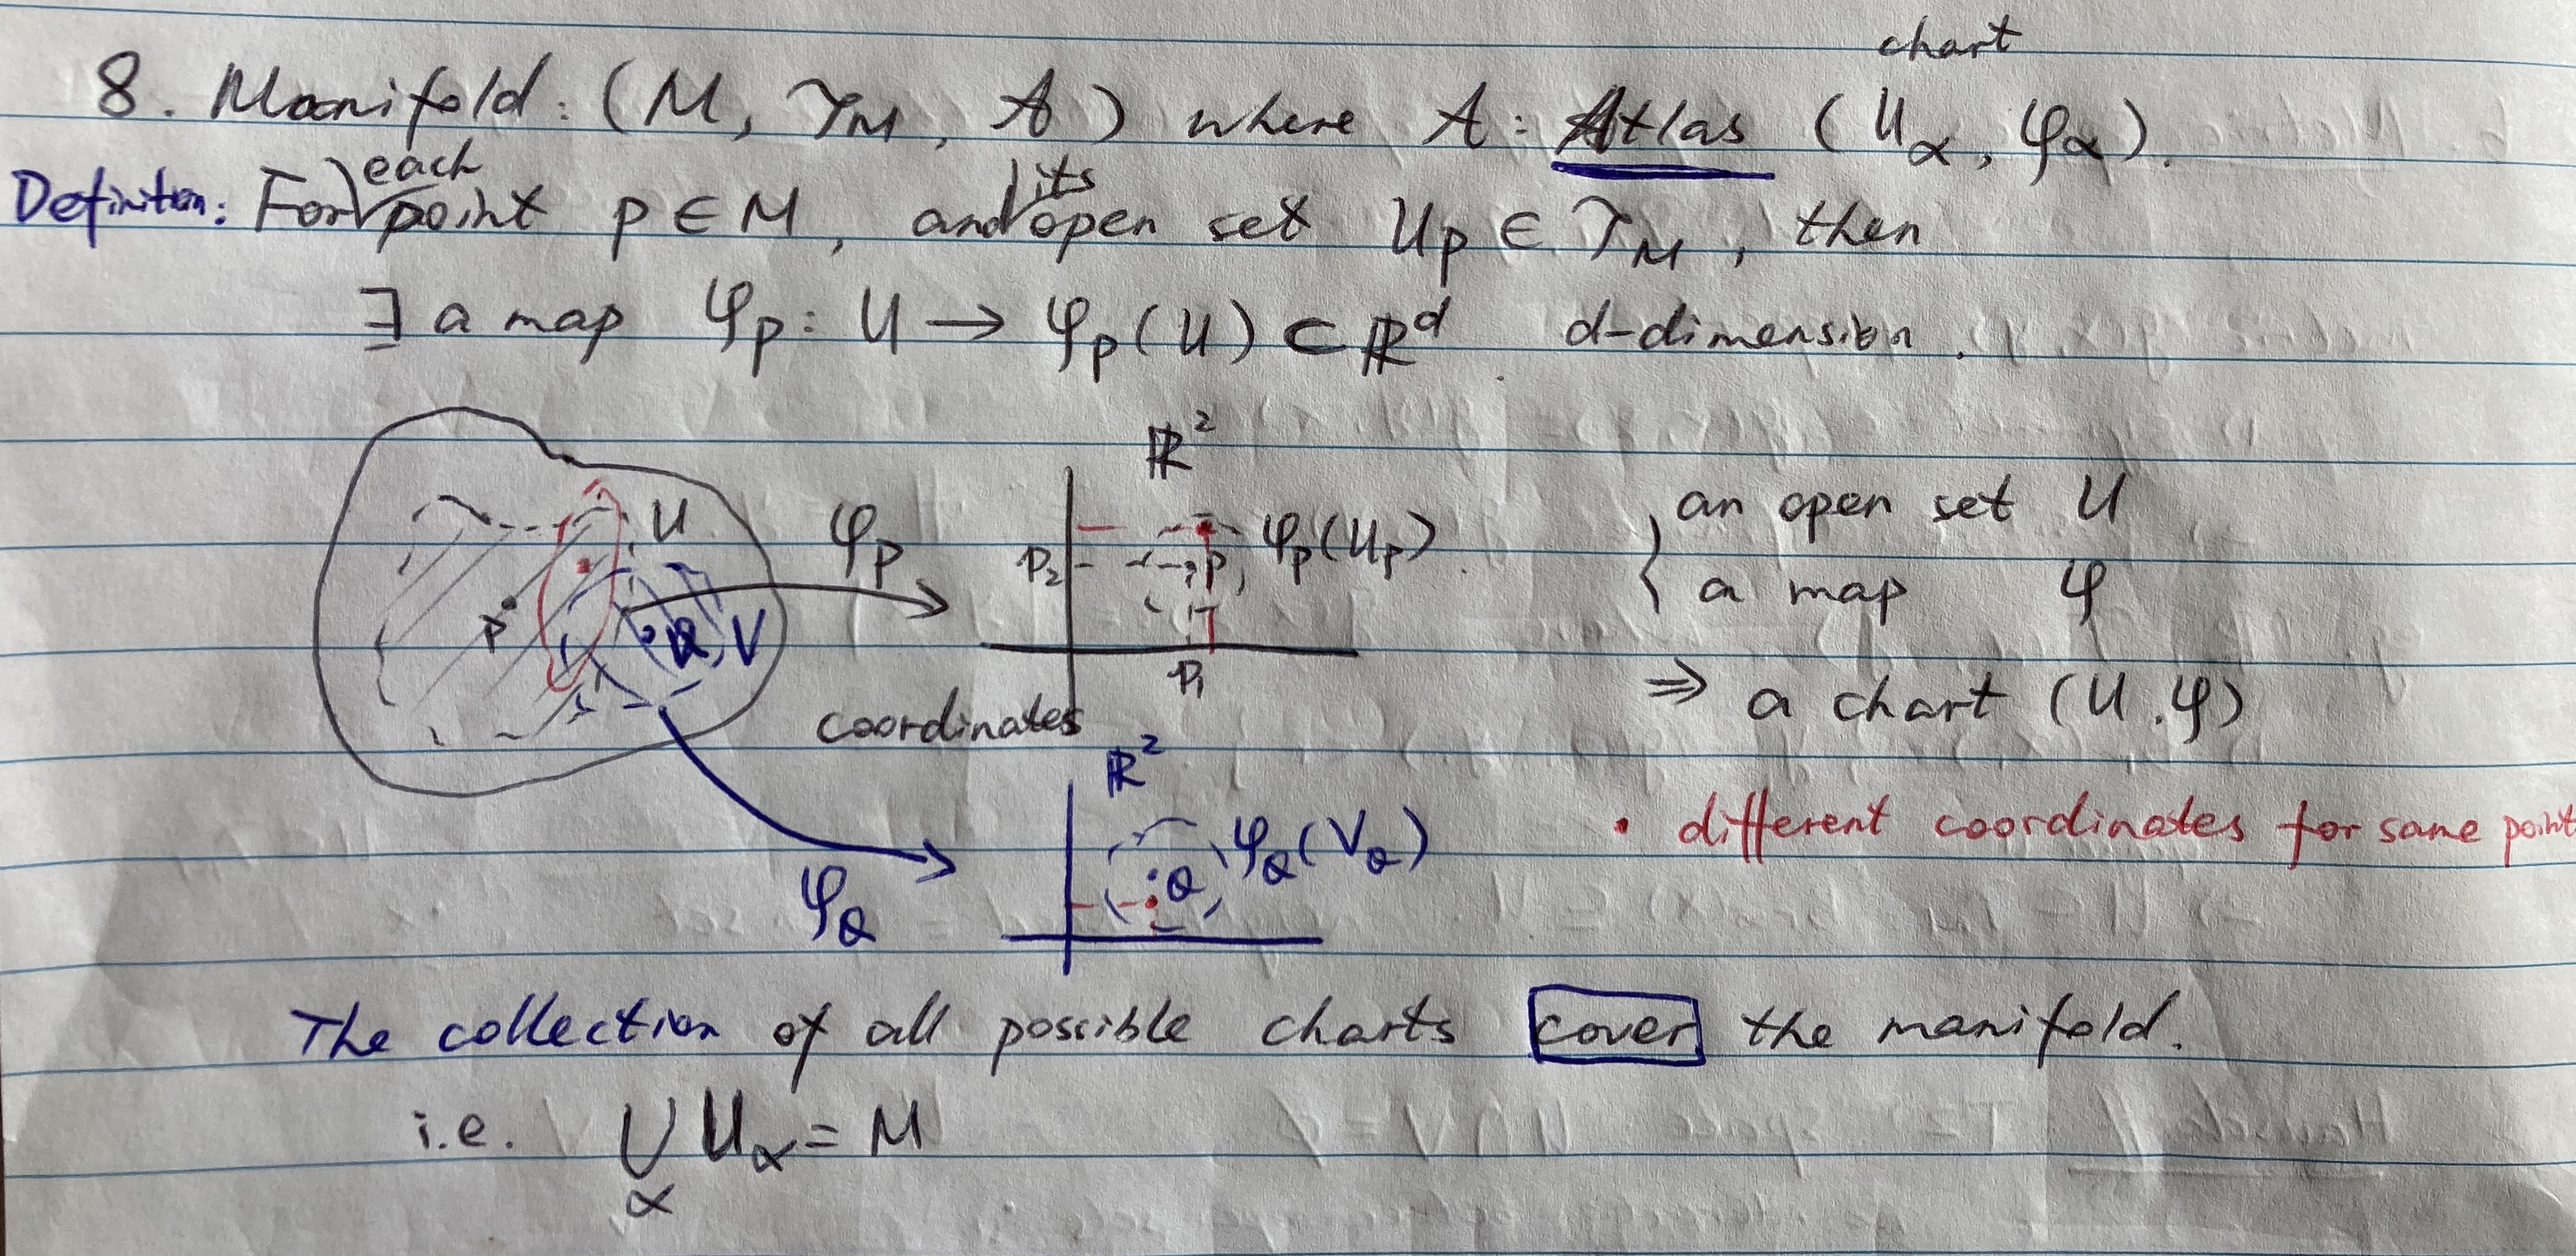 chart
8. Manifold: (M, 𝒯_M, 𝒜) where 𝒜: Atlas (U_α, φ_α).
each its
Definition: For point p ∈ M, and open set U_p ∈ 𝒯_M, then
∃ a map φ_p: U → φ_p(U) ⊂ ℝ^d d-dimension.
ℝ²
U
φ_p
P₂
P
φ_p(U_p).
P
Q
V
P₁
coordinates
an open set U
a map φ
⇒ a chart (U.φ)
ℝ²
φ_Q
Q
φ_Q(V_Q)
• different coordinates for same point
The collection of all possible charts cover the manifold.
i.e. ⋃_α U_α = M